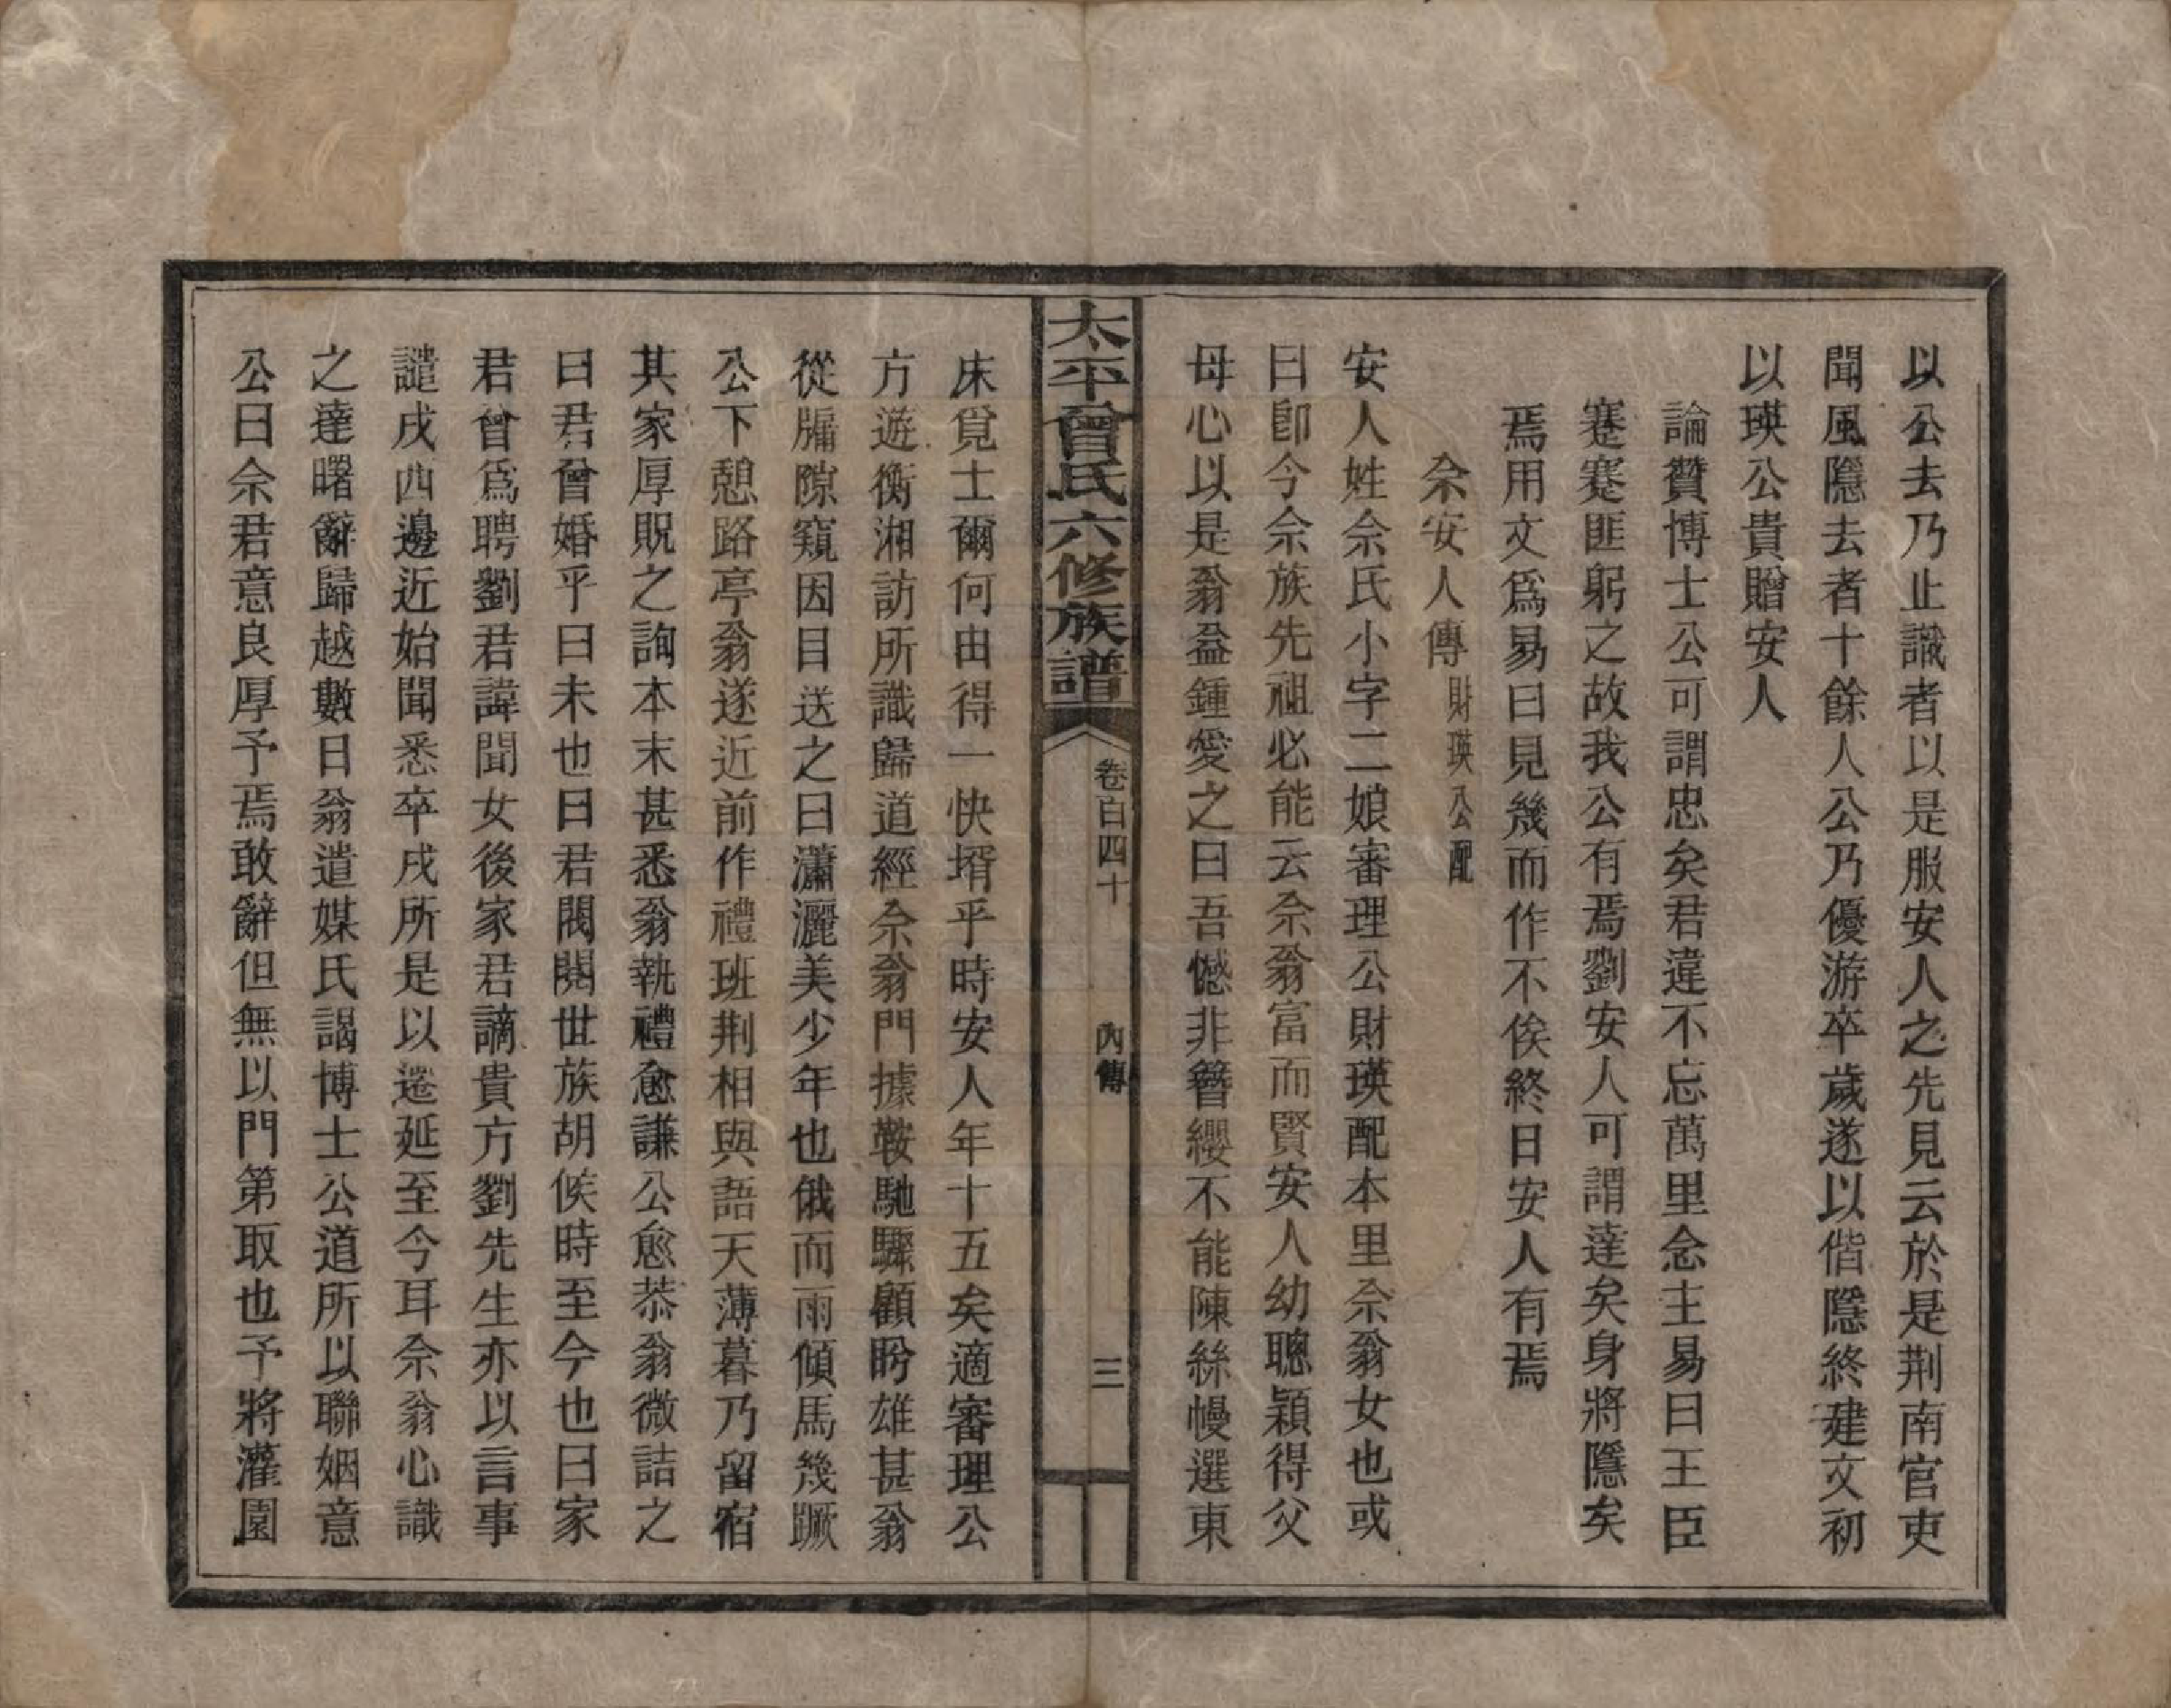 以公去乃止識者以是服安人之先見云於是荆南官吏
聞風隱去者十餘人公乃優游卒歲遂以偕隱終建文初
以瑛公貴贈安人
論贊博士公可謂忠矣君違不忘萬里念主易曰王臣
蹇蹇匪躬之故我公有焉劉安人可謂達矣身將隱矣
焉用文爲易曰見幾而作不俟終日安人有焉
佘安人傳 財瑛公配
安人姓佘氏小字二娘審理公財瑛配本里佘翁女也或
曰卽今佘族先祖必能云佘翁富而賢安人幼聰穎得父
母心以是翁益鍾愛之曰吾憾非簪纓不能陳絲幔選東
太平曾氏六修族譜
卷百四十 內傳 三
床覓士爾何由得一快壻乎時安人年十五矣適審理公
方遊衡湘訪所識歸道經佘翁門據鞍馳驟顧盼雄甚翁
從牖隙窺因目送之曰瀟灑美少年也俄而雨傾馬幾蹶
公下憩路亭翁遂近前作禮班荆相與語天薄暮乃留宿
其家厚貺之詢本末甚悉翁執禮愈謙公愈恭翁微詰之
曰君曾婚乎曰未也曰君閥閱世族胡候時至今也曰家
君曾爲聘劉君諱聞女後家君謫貴方劉先生亦以言事
譴戍四邊近始聞悉卒戍所是以遷延至今耳佘翁心識
之達曙辭歸越數日翁遣媒氏謁博士公道所以聯姻意
公曰佘君意良厚予焉敢辭但無以門第取也予將灌園